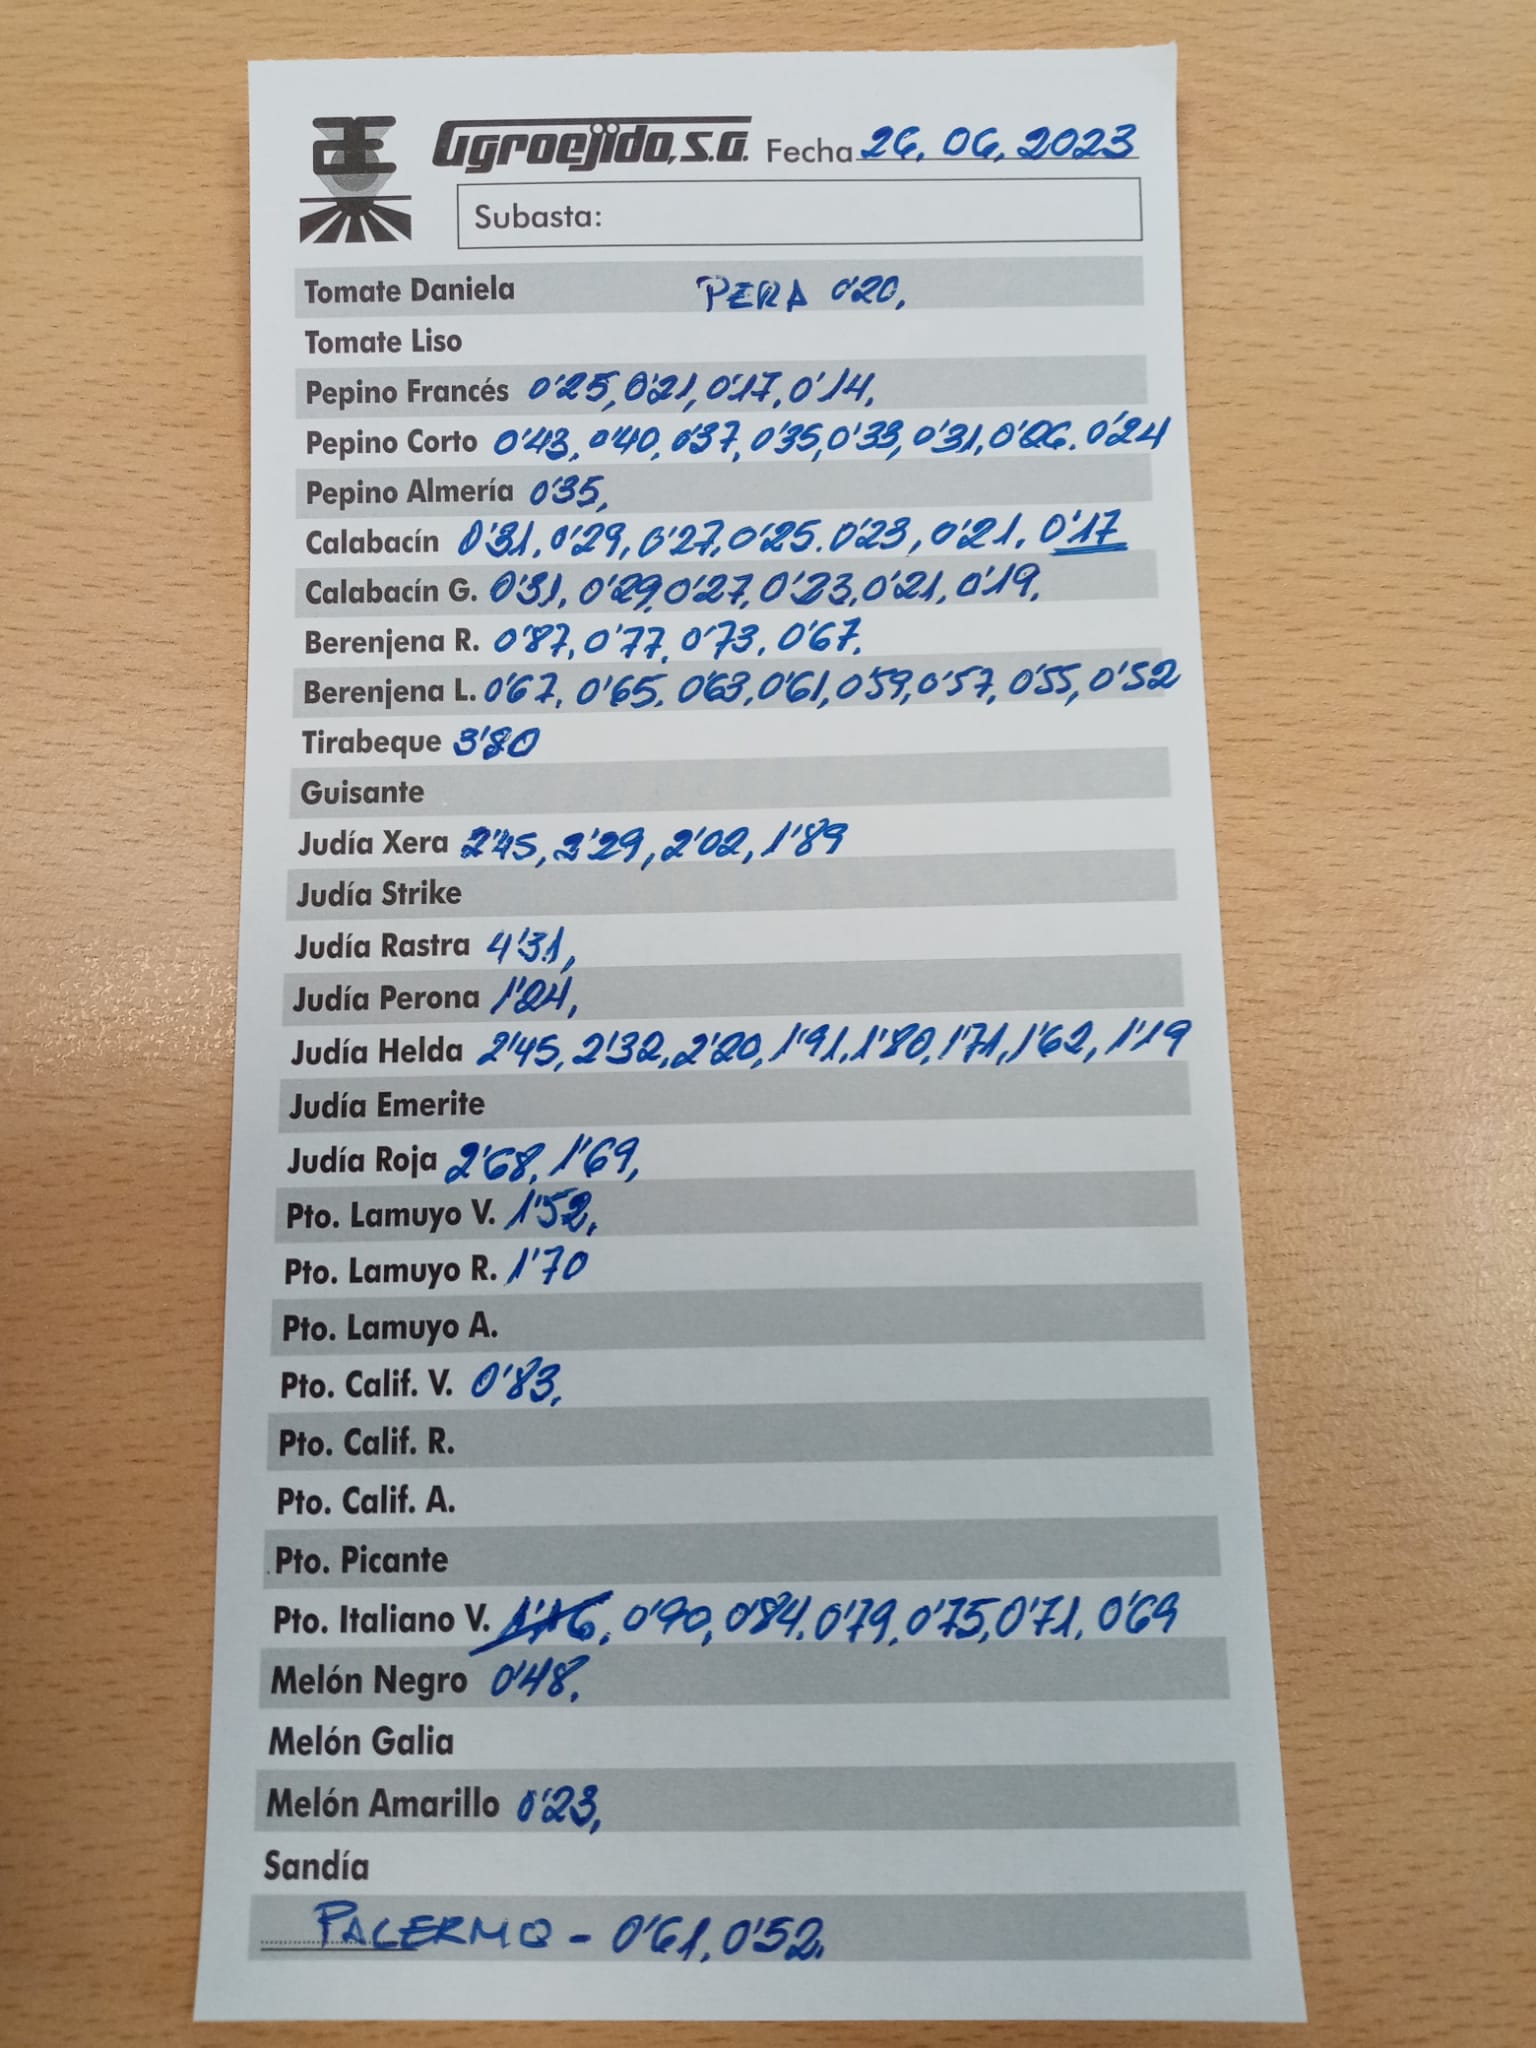 Agroejido, S.A. Fecha 26.06.2023
Subasta:
Tomate Daniela PERA 0'20,
Tomate Liso
Pepino Francés 0'25, 0'21, 0'17, 0'14,
Pepino Corto 0'43, 0'40, 0'37, 0'35, 0'33, 0'31, 0'26. 0'24
Pepino Almería 0'35,
Calabacín 0'31, 0'29, 0'27, 0'25. 0'23, 0'21, 0'17
Calabacín G. 0'31, 0'29, 0'27, 0'23, 0'21, 0'19,
Berenjena R. 0'87, 0'77, 0'73, 0'67,
Berenjena L. 0'67, 0'65, 0'63, 0'61, 0'59, 0'57, 0'55, 0'52
Tirabeque 3'80
Guisante
Judía Xera 2'45, 2'29, 2'02, 1'89
Judía Strike
Judía Rastra 4'31,
Judía Perona 1'24,
Judía Helda 2'45, 2'32, 2'20, 1'91, 1'80, 1'71, 1'62, 1'19
Judía Emerite
Judía Roja 2'68, 1'69,
Pto. Lamuyo V. 1'52,
Pto. Lamuyo R. 1'70
Pto. Lamuyo A.
Pto. Calif. V. 0'83,
Pto. Calif. R.
Pto. Calif. A.
Pto. Picante
Pto. Italiano V. 0'90, 0'84, 0'79, 0'75, 0'71, 0'69
Melón Negro 0'48,
Melón Galia
Melón Amarillo 0'23,
Sandía
PALERMO - 0'61, 0'52,